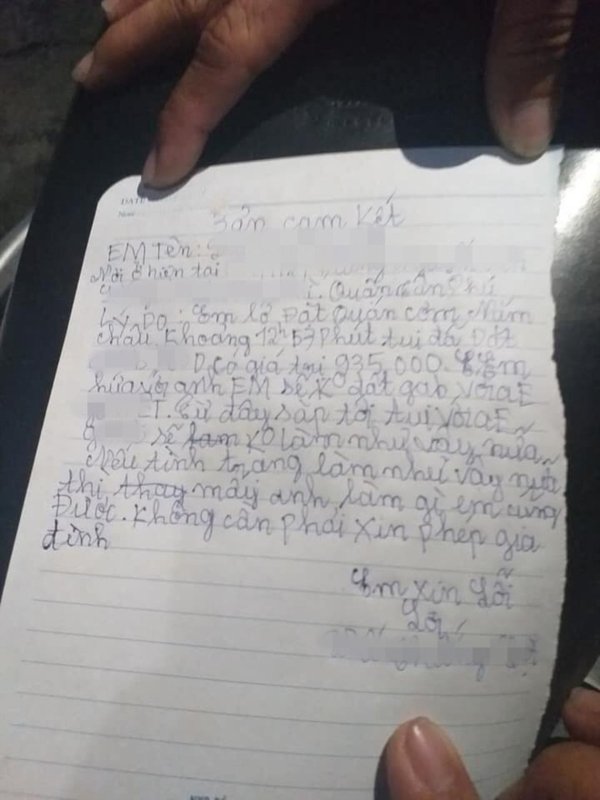 DATE
Bản cam kết
EM Tên:
Nơi ở hiện tại
Quận Tân Phú
Lý Do: Em lở Đặt Quán cơm Năm
châu. Khoảng 12h57 Phút tui đã Đặt
có giá trị 935,000. Em
hứa với anh EM sẽ Ko đặt gab, với aE
Từ đây sắp tới tui với aE
sẽ làm KO làm như vậy nữa
Nếu tình trạng làm như vậy nữa
thì, thay mấy anh làm gì em cũng
Được. Không cần phải xin phép gia
đình
Em xin Lỗi